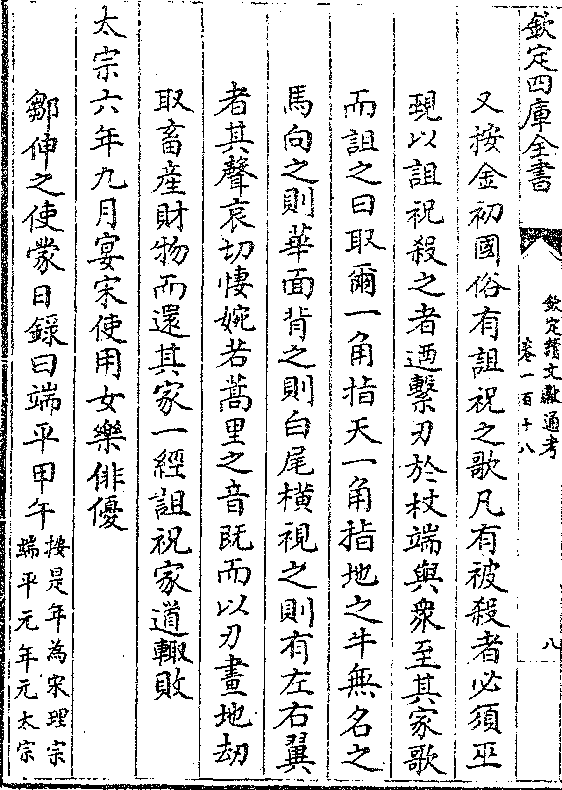 欽定四庫全書
欽定續文獻通考
卷一百十八
八
又按金初國俗有詛祝之歌凡有被殺者必須巫
覡以詛祝殺之者迺繫刃於杖端與衆至其家歌
而詛之曰取爾一角指天一角指地之牛無名之
馬向之則華面背之則白尾橫視之則有左右翼
者其聲哀切悽婉若蒿里之音既而以刃畫地劫
取畜産財物而還其家一經詛祝家道輙敗
太宗六年九月宴宋使用女樂俳優
鄒伸之使蒙日錄曰端平甲午
按是年為宋理宗
端平元年元太宗